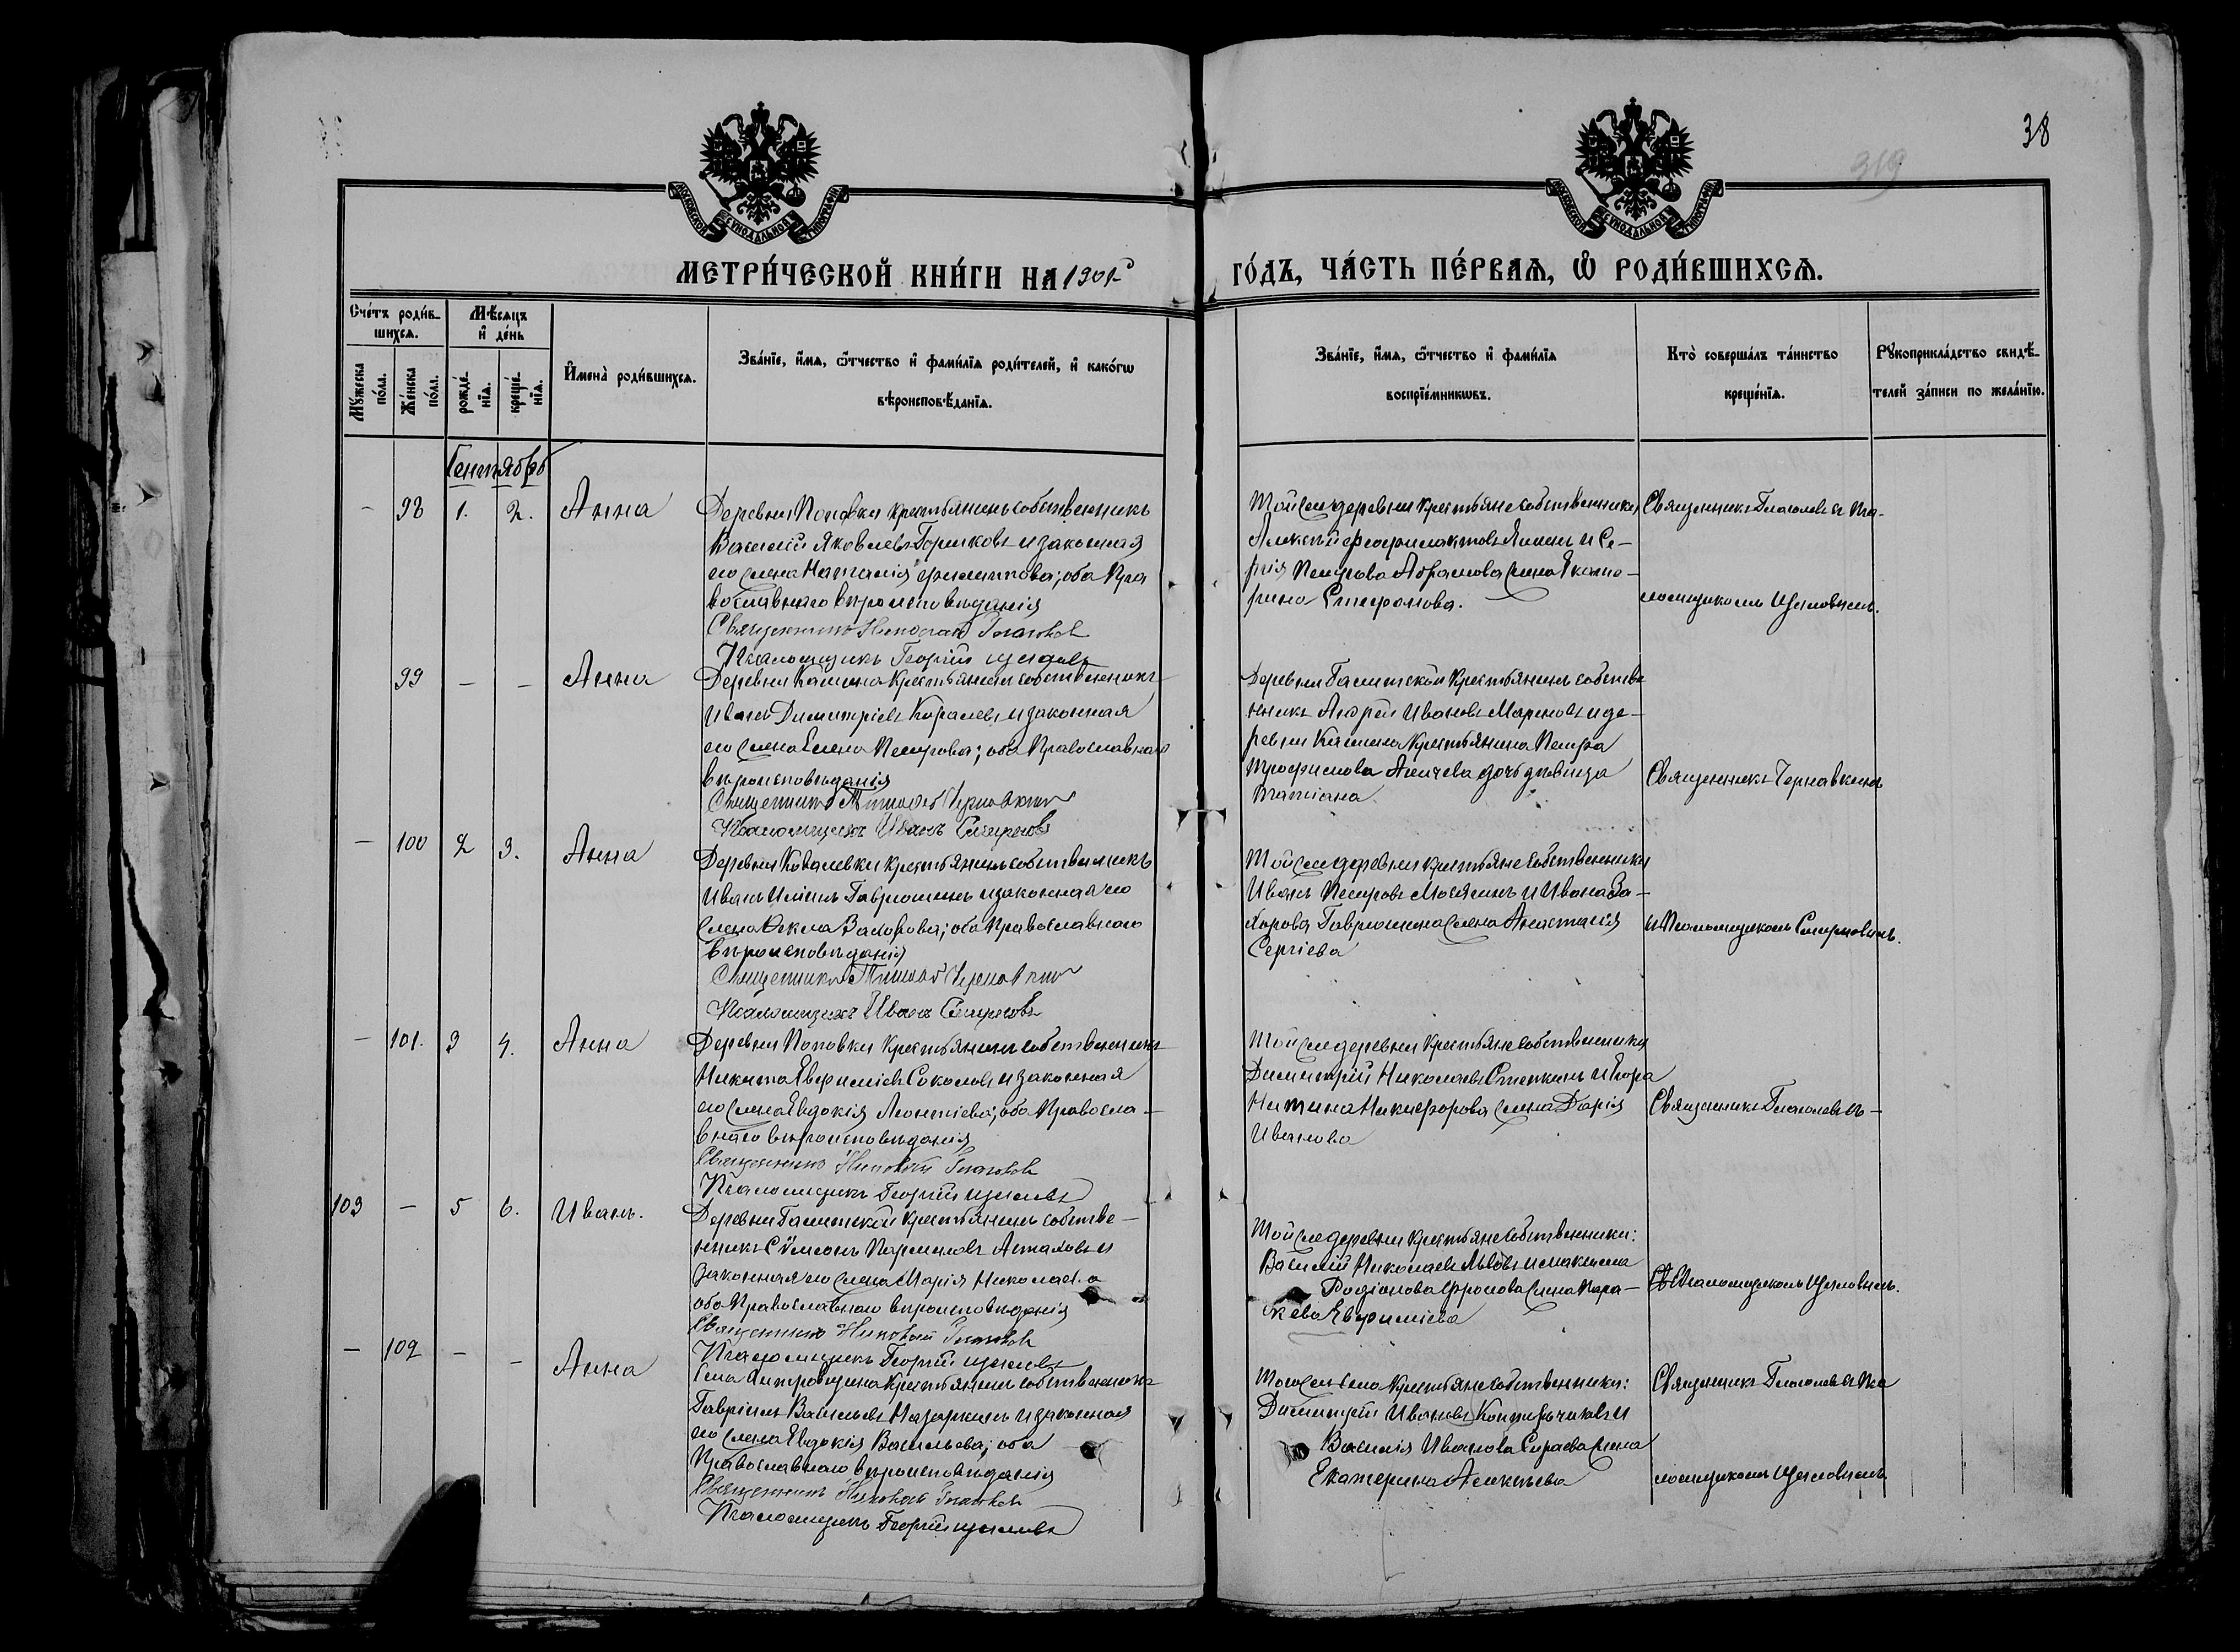 38
319
МОСКОВСКОЙ СѴНОДАЛЬНОЙ ТИПОГРАФІИ
МОСКОВСКОЙ СѴНОДАЛЬНОЙ ТИПОГРАФІИ
МЕТРИ́ЧЕСКОЙ КНИ́ГИ НА 1901й
ГО́ДЪ, ЧА́СТЬ ПЕ́РВАѦ, Ѡ҆ РОДИ́ВШИХСѦ.
Сче́тъ роди́в-
шихсѧ.
Мꙋ́жеска
по́ла.
Же́нска
по́ла.
Мѣ́сѧцъ
и҆ де́нь
рожде́-
нїѧ.
креще́-
нїѧ.
И҆мена̀ роди́вшихсѧ.
Зва́нїе, и҆́мѧ, ѻ҆́тчество и҆ фами́лїѧ роди́телей, и҆ како́гѡ
вѣроисповѣ́данїѧ.
Зва́нїе, и҆́мѧ, ѻ҆́тчество и҆ фами́лїѧ
воспрїе́мникѡвъ.
Кто̀ соверша́лъ та́инство
креще́нїѧ.
Рꙋкоприкла́дство свидѣ́-
телей за́писи по жела́нїю.
Сентябрь
- 98 1. 2. Анна
Деревни Поповки крестьянинъ собственникъ
Василій Яковлевъ Горшковъ и законная
его жена Наталія Филиппова; оба Пра
вославнаго вѣроисповѣданія
Священникъ Николай Глаголевъ
Псаломщикъ Георгій
Той же деревни крестьяне собственники
Алексѣй Феофилактовъ Янинъ и Се-
ргія Петрова Абрамова жена Екате-
рина Стефанова.
Священникъ Глаголевъ съ Пса-
ломщикомъ
99 - - Анна
Деревни Камина крестьянинъ собственникъ
Иванъ Димитріевъ Каралевъ и законная
его жена Елена Петрова; оба Православнаго
вѣроисповѣданія
Священникъ Чернавкинъ
Псаломщикъ Иванъ Смирновъ
Деревни Галитской крестьянинъ собстве
нникъ Андрей Ивановъ Мариновъ и де-
ревни Камина крестьянина Петра
Трофимова дочь дѣвица
Татіана
Священникъ Чернавкинъ
- 100 2 3. Анна
Деревни Ковалевки крестьянинъ собственникъ
Иванъ Ильинъ Гаврюшинъ и законная его
жена Ѳекла Захарова; оба Православнаго
вѣроисповѣданія
Священникъ Чернавкинъ
Псаломщикъ Иванъ Смирновъ
Той же деревни крестьяне собственники
Иванъ Петровъ Мосякинъ и Ивана За-
харова Гаврюшина жена Анастасія
Сергіева
и Псаломщикомъ Смирновымъ.
- 101. 3 4. Анна
Деревни Поповки крестьянинъ собственникъ
Никита Евфиміевъ Соколовъ и законная
его жена Евдокія Леонтіева; оба Правосла-
внаго вѣроисповѣданія
Священникъ Николай Глаголевъ
Псаломщикъ Георгій
Той же деревни крестьяне собственники
Димитрій Николаевъ Степкинъ и Егора
Никифорова жена Дарія
Иванова
Священникъ Глаголевъ съ-
103 - 5 6. Иванъ.
Деревни Галитской крестьянинъ собстве-
нникъ Сѵмеонъ Парменовъ Астаховъ и
законная его жена Марія Николаева
оба Православнаго вѣроисповѣданія
Священникъ Николай Глаголевъ
Псаломщикъ Георгій
Той же деревни крестьяне собственники:
Василій Николаевъ Львовъ и Максима
Родіонова Фролова жена Пара-
скева Евфиміева
Псаломщикомъ
- 102 - - Анна
Села крестьянинъ собственникъ
Гавріилъ Васильевъ Назаркинъ и законная
его жена Евдокія Васильева; оба
Православнаго вѣроисповѣданія
Священникъ Николай Глаголевъ
Псаломщикъ Георгій
Того же села крестьяне собственники:
Димитрій Ивановъ и
Василія Иванова жена
Екатерина Алексѣева
Священникъ Глаголевъ съ Пса
ломщикомъ